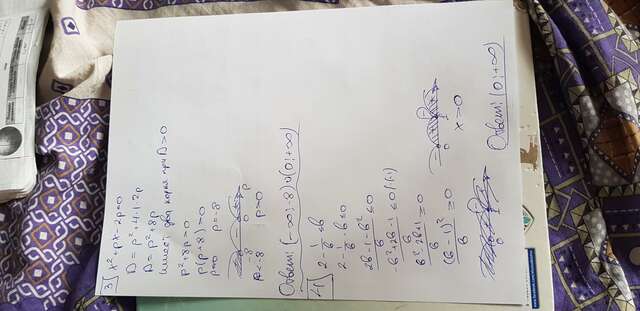 3) x² + px - 2p = 0
D = p² + 4·1·2p
D = p² + 8p
имеет два корня при D > 0
p² + 8p = 0
p(p + 8) = 0
p = 0 p = -8
-8 0 p
p < -8 p > 0
Ответ: (-∞; -8) ∪ (0; +∞)
4) 2 - 1/b ≤ b
2 - 1/b - b ≤ 0
2b - 1 - b² / b ≤ 0
-b² + 2b - 1 / b ≤ 0 |·(-1)
b² - 2b + 1 / b ≥ 0
(b - 1)² / b ≥ 0
0
0
x > 0
Ответ: (0; +∞)